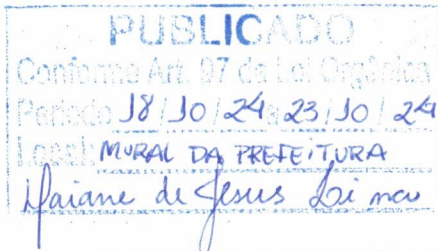 PUBLICADO
Conforme Art. 97 da Lei Orgânica
Período 18/10/24 a 23/10/24
Local: MURAL DA PREFEITURA
de Jesus